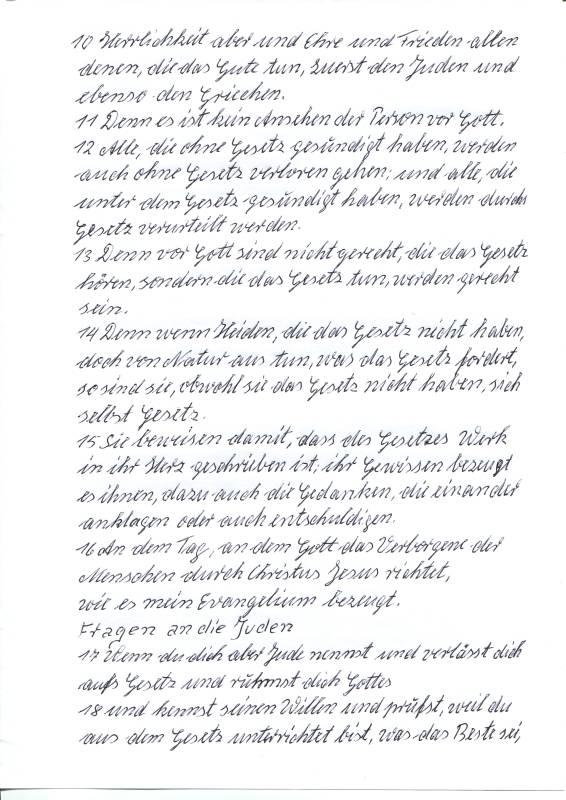 10 Herrlichkeit aber und Ehre und Frieden allen
denen, die das Gute tun, zuerst den Juden und
ebenso den Griechen.
11 Denn es ist kein Ansehen der Person vor Gott.
12 Alle, die ohne Gesetz gesündigt haben, werden
auch ohne Gesetz verloren gehen; und alle, die
unter dem Gesetz gesündigt haben, werden durchs
Gesetz verurteilt werden.
13 Denn vor Gott sind nicht gerecht, die das Gesetz
hören, sondern die das Gesetz tun, werden gerecht
sein.
14 Denn wenn Heiden, die das Gesetz nicht haben,
doch von Natur aus tun, was das Gesetz fordert,
so sind sie, obwohl sie das Gesetz nicht haben, sich
selbst Gesetz.
15 Sie beweisen damit, dass des Gesetzes Werk
in ihr Herz geschrieben ist; ihr Gewissen bezeugt
es ihnen, dazu auch die Gedanken, die einander
anklagen oder auch entschuldigen.
16 An dem Tag, an dem Gott das Verborgene der
Menschen durch Christus Jesus richtet,
wie es mein Evangelium bezeugt.
Fragen an die Juden
17 Wenn du dich aber Jude nennst und verlässt dich
aufs Gesetz und rühmst dich Gottes
18 und kennst seinen Willen und prüfst, weil du
aus dem Gesetz unterrichtet bist, was das Beste sei,